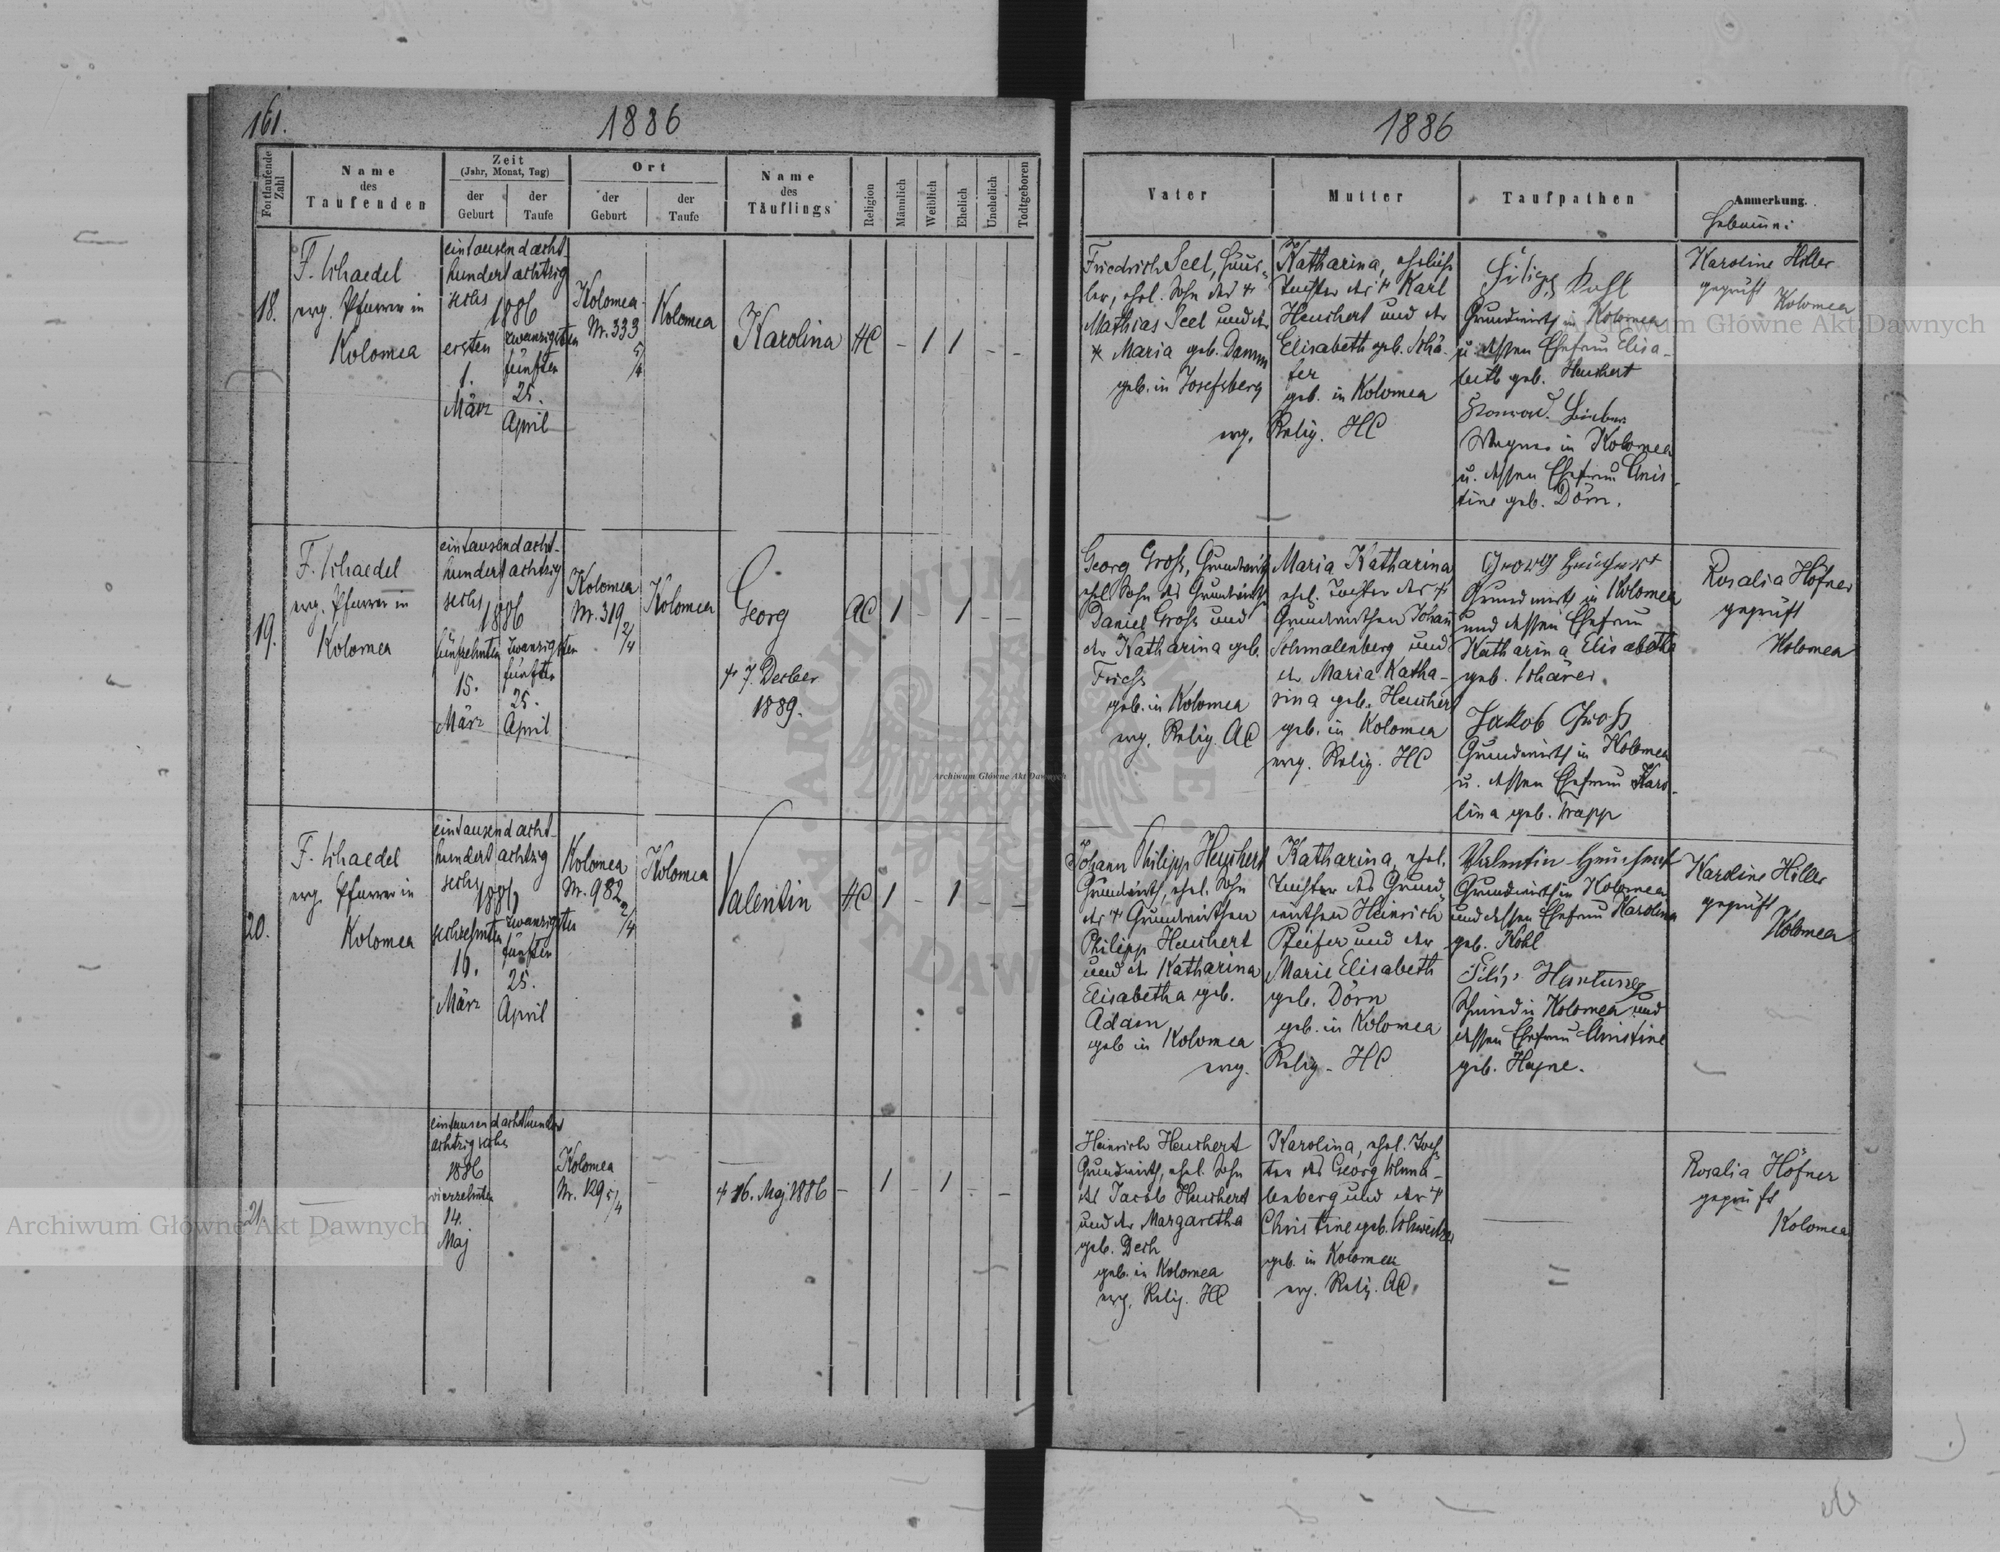 161.
1886
Fortlaufende Zahl
Name
des
Taufenden
Zeit
(Jahr, Monat, Tag)
der
Geburt
der
Taufe
Ort
der
Geburt
der
Taufe
Name
des
Täuflings
Religion
Männlich
Weiblich
Ehelich
Unehelich
Todtgeboren
18.
F. Schaedel
evg. Pfarrer in
Kolomea
eintausendacht-
hundert achtzig
sechs
1886
ersten
1.
März
zwanzigsten
fünften
25.
April
Kolomea
Nr. 333
5/4
Kolomea
Karolina
HC
- 1 1 - -
19.
F. Schaedel
evg. Pfarrer in
Kolomea
eintausendacht-
hundert achtzig
sechs
1886
fünfzehnten
15.
März
zwanzigsten
fünften
25.
April
Kolomea
Nr. 319
2/4
Kolomea
Georg
† 7. Decber
1889.
AC
1 - 1 - -
20.
F. Schaedel
evg. Pfarrer in
Kolomea
eintausendacht-
hundert achtzig
sechs
1886
sechzehnten
16.
März
zwanzigsten
fünften
25.
April
Kolomea
Nr. 982
2/4
Kolomea
Valentin
HC
1 - 1 - -
21.
eintausendachthundert
achtzig sechs
1886
vierzehnten
14.
Maj
Kolomea
Nr. 129 5/4
-
† 16. Maj 1886
- 1 1 - -
1886
Vater
Mutter
Taufpathen
Anmerkung.
Hebamme:
Friedrich Seel, Häus-
ler, ehel. Sohn des †
Mathias Seel und der
† Maria geb. Damm
geb. in Josefsberg
Katharina, eheliche
Tochter des † Karl
Heuchert und der
Elisabeth geb. Schä-
fer
geb. in Kolomea
evg. Relig. HC
Filipp Kohl
Grundwirth in Kolomea
u. dessen Ehefrau Elisa-
beth geb. Heuchert
Konrad
Wagner in Kolomea
u. dessen Ehefrau Chris-
tine geb. Dörn.
Karoline Höller
geprüft
Kolomea
Georg Gross, Grundwirth
ehel. Sohn des Grundwirths
Daniel Gross und
der Katharina geb.
geb. in Kolomea
evg. Relig. AC
Maria Katharina
ehel. Tochter des †
Grundwirthen Johann
Schmalenberg und
der Maria Katha-
rina geb. Heuchert
geb. in Kolomea
evg. Relig. HC
Georg Heuchert
Grundwirth in Kolomea
und dessen Ehefrau
Katharina Elisabetha
geb. Schärer.
Jakob Gross
Grundwirth in Kolomea
u. dessen Ehefrau Karo-
lina geb. Trapp
Rosalia Höfner
geprüft
Kolomea
Johann Philipp Heuchert
Grundwirth, ehel. Sohn
des † Grundwirthen
Philipp Heuchert
und der Katharina
Elisabetha geb.
Adam
geb in Kolomea
Katharina, ehel.
Tochter des Grund-
wirthen Heinrich
Pfeifer und der
Marie Elisabeth
geb. Dörn
geb. in Kolomea
evg. Relig. HC
Valentin Heuchert
Grundwirth in Kolomea
und dessen Ehefrau Karolina
geb. Kohl
Filip Hartung
Schmied in Kolomea und
dessen Ehefrau Christine
geb. Hayne.
Karoline Höller
geprüft
Kolomea
Heinrich Heuchert
Grundwirth, ehel. Sohn
des Jacob Heuchert
und der Margaretha
geb. Desh
geb. in Kolomea
evg. Relig. HC
Karolina, ehel. Toch-
ter des Georg Schma-
lenberg und der †
Christine geb. Schweitzer
geb. in Kolomea
evg. Relig. AC.
Rosalia Höfner
geprüft
Kolomea
Archiwum Główne Akt Dawnych
Archiwum Główne Akt Dawnych
Archiwum Główne Akt Dawnych